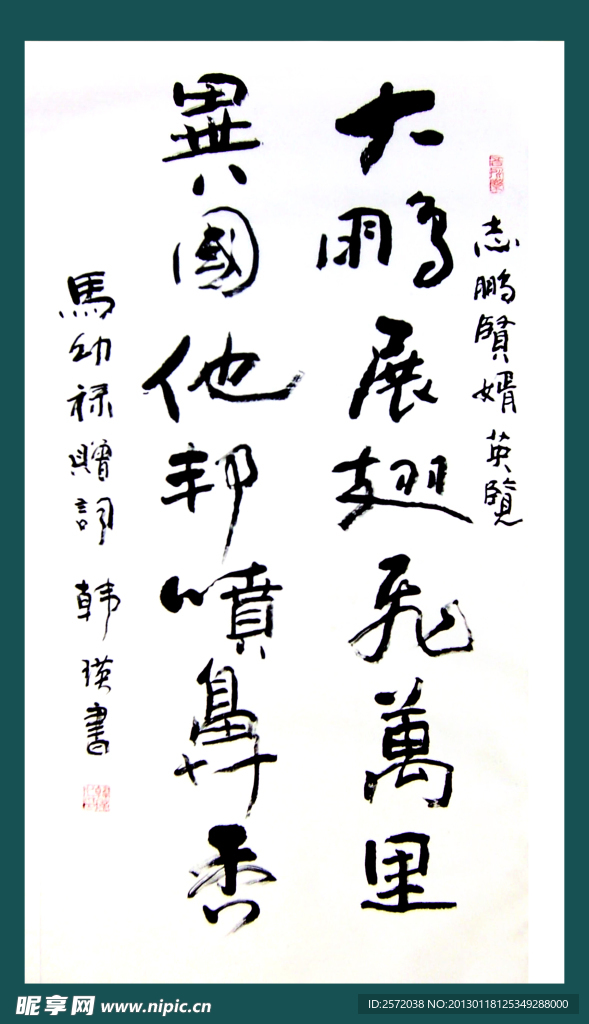 志鵬賢婿 英覽
大鵬展翅飛萬里
異國他邦噴鼻香
馬幼祿贈詞 韩瑛書
昵享网 www.nipic.cn
ID:2572038 NO:20130118125349288000